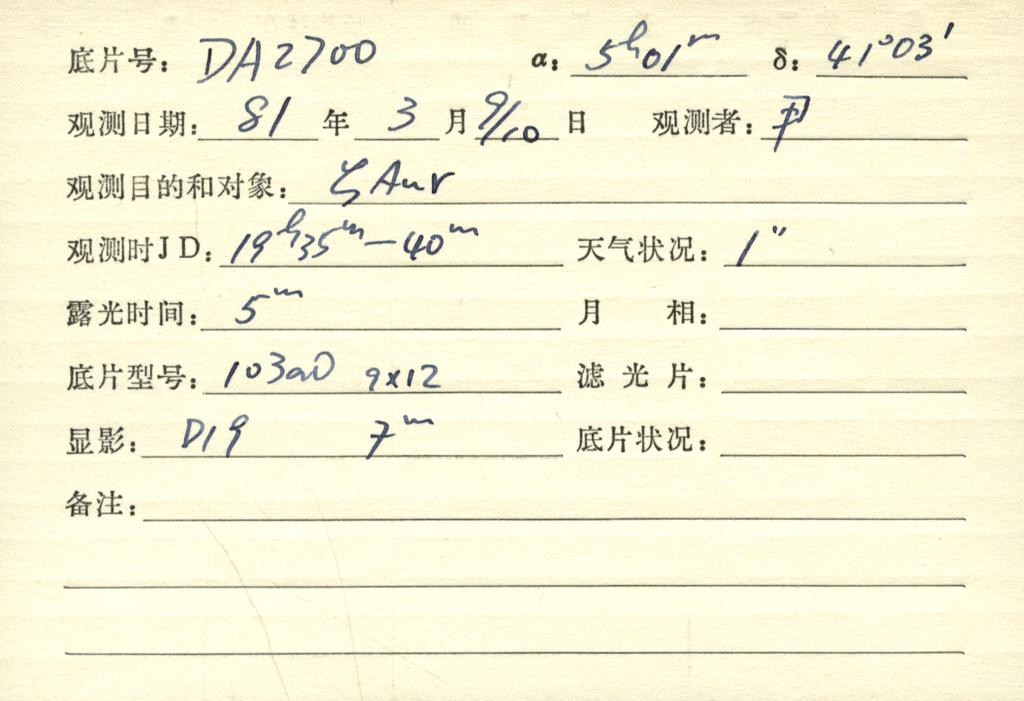 底片号: DA2700 α: 5h01m δ: 41°03′
观测日期: 81 年 3 月 9/10 日 观测者: 尹
观测目的和对象: ζ Aur
观测时JD: 19h35m—40m 天气状况: 1″
露光时间: 5m 月 相:
底片型号: 103aO 9×12 滤光片:
显影: D19 7m 底片状况:
备注: